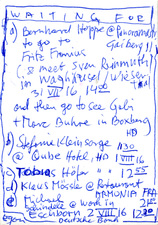 WAITING FOR
a) Bernhard Hoppe @ Panoramastr
to go to Gaiberg !!
Fritz
(& meet Sven
in Waghäusel / Wiesen
31 VII 16, 14 00
and then go to see Gabi
+ Marc Buhre in Boxberg
HD
b) Stefanie Kleinsorge 11 30
@ Qube Hotel, HD 1 VIII 16
c) Tobias Höfer " " 12 55
d) Klaus Mössle @ Restaurant
HARMONIA FFM
e) Michael @ work in
Eschborn 2 VIII 16 12 30
Deutsche Bank